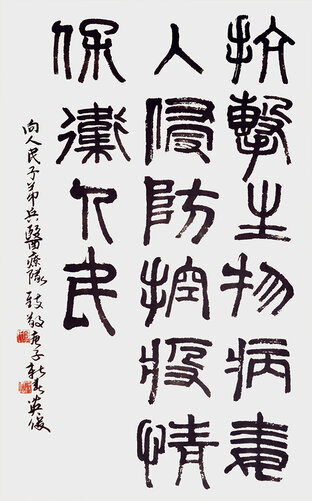 抗擊生物病毒
人侵防控疫情
保衛人民
向人民子弟兵醫療隊致敬庚子新春英俊